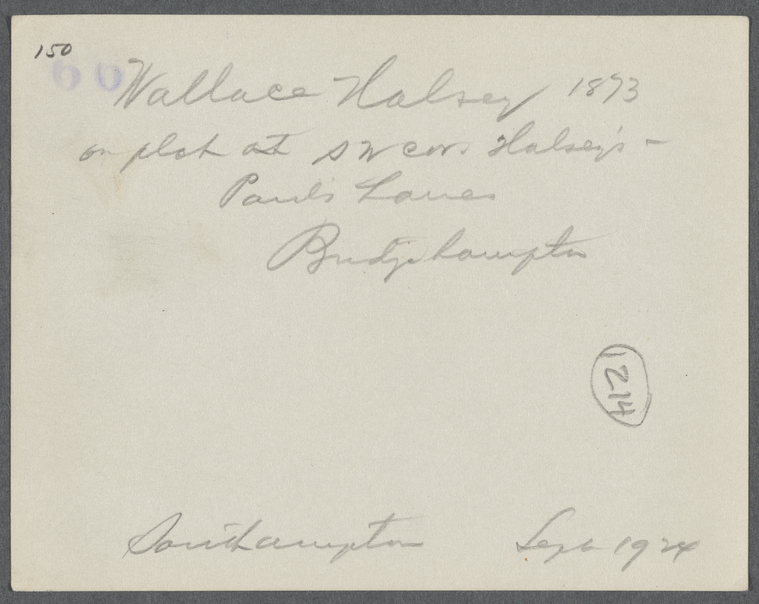 150
66
Wallace Halsey 1873
on plot at SW cor. Halsey's -
Paul's Lanes
Bridgehampton
1214
Southampton Sept 1924